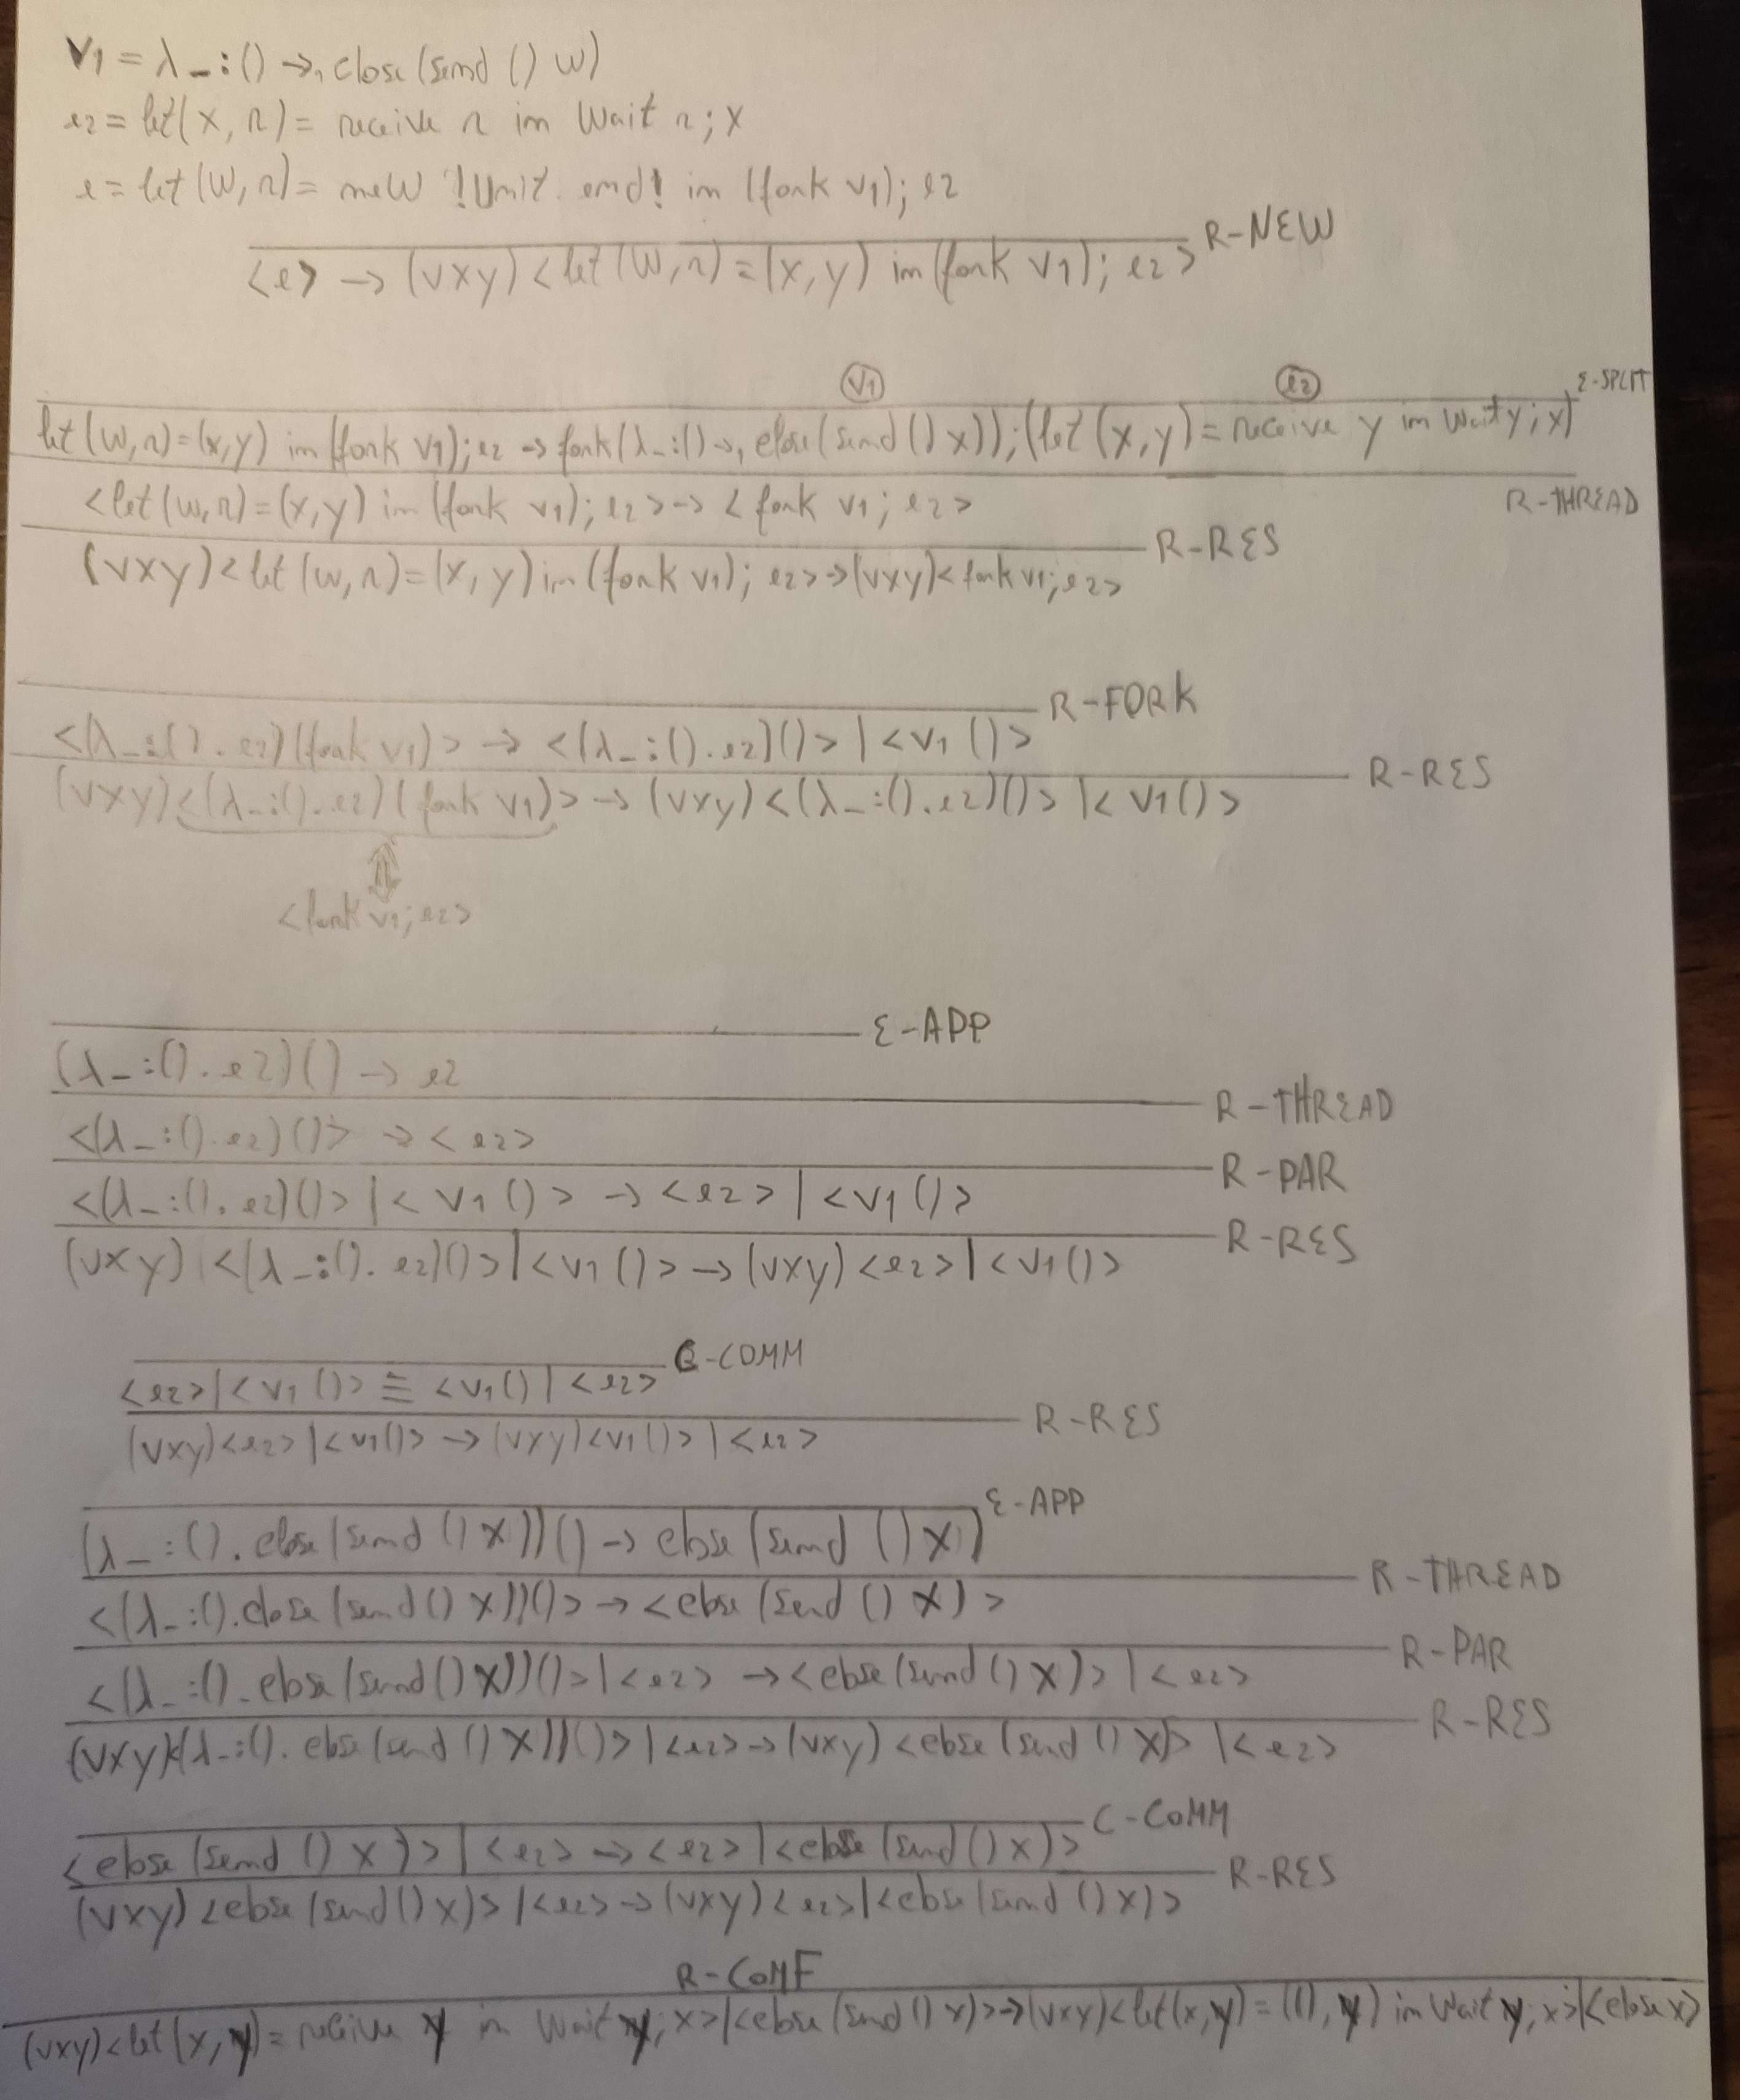 V1 = λ_:() →₁ close (send () w)
e2 = let (x, r) = receive r in wait r; x
e = let (w, r) = new !Unit. end! in (fork v1); e2
R-NEW
<e> → (νxy) <let (w, r) = (x, y) in (fork v1); e2>
V1 e2 E-SPLIT
let (w, r) = (x, y) in (fork v1); e2 → fork (λ_:() →₁ close (send () x)); (let (x, y) = receive y in wait y; x)
R-THREAD
<let (w, r) = (x, y) in (fork v1); e2> → < fork v1; e2>
R-RES
(νxy) < let (w, r) = (x, y) in (fork v1); e2> → (νxy) < fork v1; e2>
R-FORK
<(λ_:(). e2) (fork v1)> → <(λ_:(). e2) ()> | <v1 ()>
R-RES
(νxy) <(λ_:(). e2) (fork v1)> → (νxy) <(λ_:(). e2) ()> | < v1 ()>
<fork v1; e2>
E-APP
(λ_:(). e2) () → e2
R-THREAD
<(λ_:(). e2) ()> → < e2>
R-PAR
<(λ_:(). e2) ()> | < v1 () > → < e2> | <v1 ()>
R-RES
(νxy) <(λ_:(). e2) ()> | <v1 ()> → (νxy) <e2> | <v1 ()>
C-COMM
<e2> | <v1 ()> ≡ <v1 () | <e2>
R-RES
(νxy) <e2> | <v1 ()> → (νxy) <v1 ()> | <e2>
E-APP
(λ_:(). close (send () x)) () → close (send () x)
R-THREAD
<(λ_:(). close (send () x)) ()> → <close (send () x) >
R-PAR
<(λ_:(). close (send () x)) ()> | <e2> → <close (send () x)> | <e2>
R-RES
(νxy) <(λ_:(). close (send () x)) ()> | <e2> → (νxy) <close (send () x)> | <e2>
C-COMM
<close (send () x)> | <e2> → <e2> | <close (send () x)>
R-RES
(νxy) <close (send () x)> | <e2> → (νxy) <e2> | <close (send () x)>
R-COMF
(νxy) <let (x, y) = receive y in wait y; x> | <close (send () x)> → (νxy) <let (x, y) = ((), y) in wait y; x> | <close x>